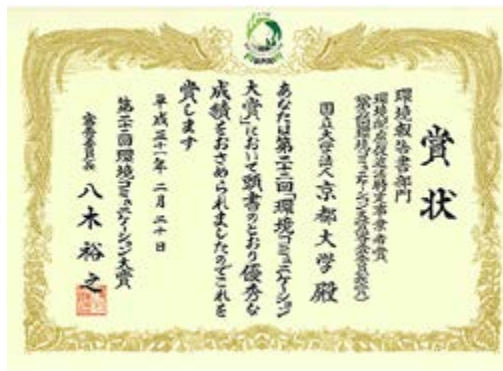 賞状
環境報告書部門
環境配慮促進法特定事業者賞
(第22回環境コミュニケーション大賞審査委員長賞)
国立大学法人京都大学殿
あなたは第二十二回「環境コミュニケーション
大賞」において頭書のとおり優秀な
成績をおさめられましたのでこれを
賞します
平成三十一年二月二十日
第二十二回環境コミュニケーション大賞
審査委員長 八木裕之